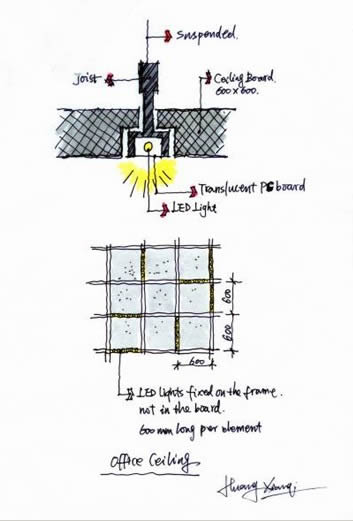 Suspended.
Joist
Ceiling Board.
600 x 600.
Translucent PC board
LED Light
600
600
600
LED Lights fixed on the frame.
not in the board.
600 mm long per element
Office Ceiling
Huang